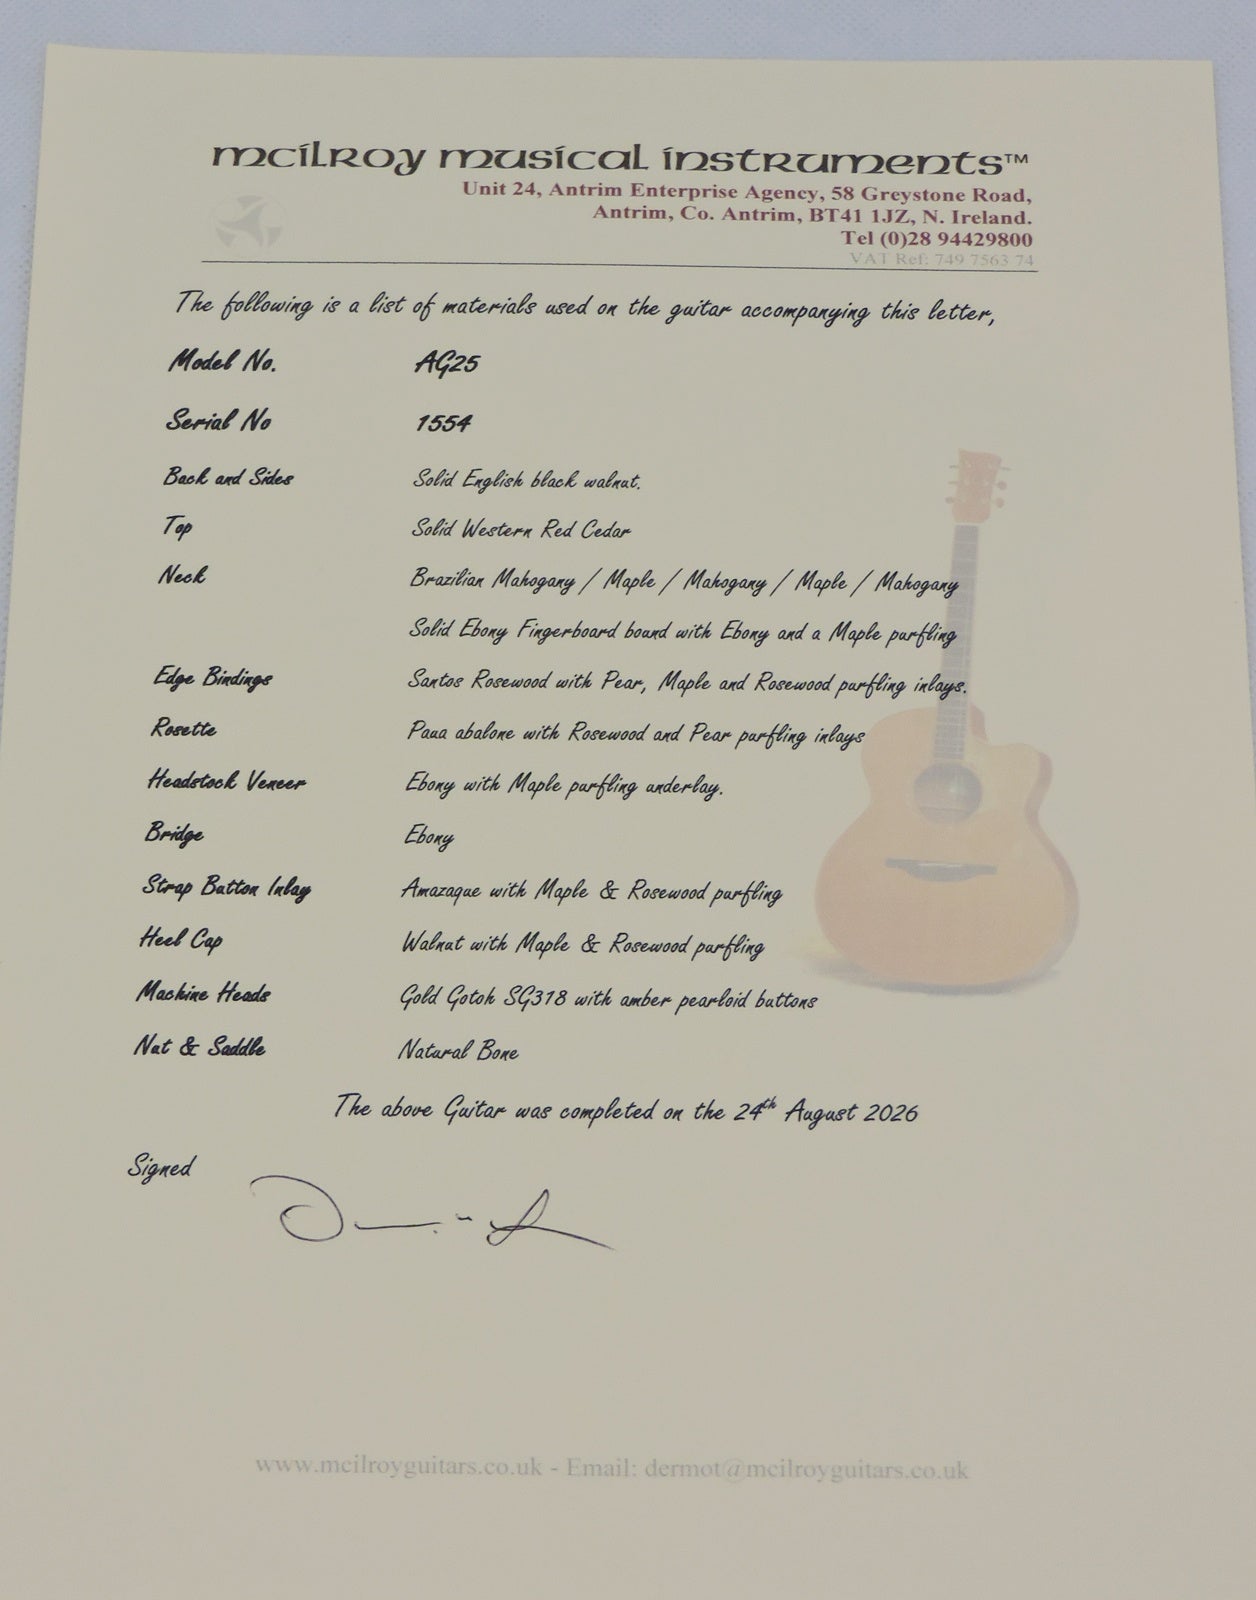 mcilroy musical instruments™
Unit 24, Antrim Enterprise Agency, 58 Greystone Road,
Antrim, Co. Antrim, BT41 1JZ, N. Ireland.
Tel (0)28 94429800
VAT Ref: 749 7563 74
The following is a list of materials used on the guitar accompanying this letter,
Model No. AG25
Serial No 1554
Back and Sides Solid English black walnut.
Top Solid Western Red Cedar
Neck Brazilian Mahogany / Maple / Mahogany / Maple / Mahogany
Solid Ebony Fingerboard bound with Ebony and a Maple purfling
Edge Bindings Santos Rosewood with Pear, Maple and Rosewood purfling inlays.
Rosette Paua abalone with Rosewood and Pear purfling inlays
Headstock Veneer Ebony with Maple purfling underlay.
Bridge Ebony
Strap Button Inlay Amazaque with Maple & Rosewood purfling
Heel Cap Walnut with Maple & Rosewood purfling
Machine Heads Gold Gotoh SG318 with amber pearloid buttons
Nut & Saddle Natural Bone
The above Guitar was completed on the 24th August 2026
Signed
www.mcilroyguitars.co.uk - Email: dermot@mcilroyguitars.co.uk